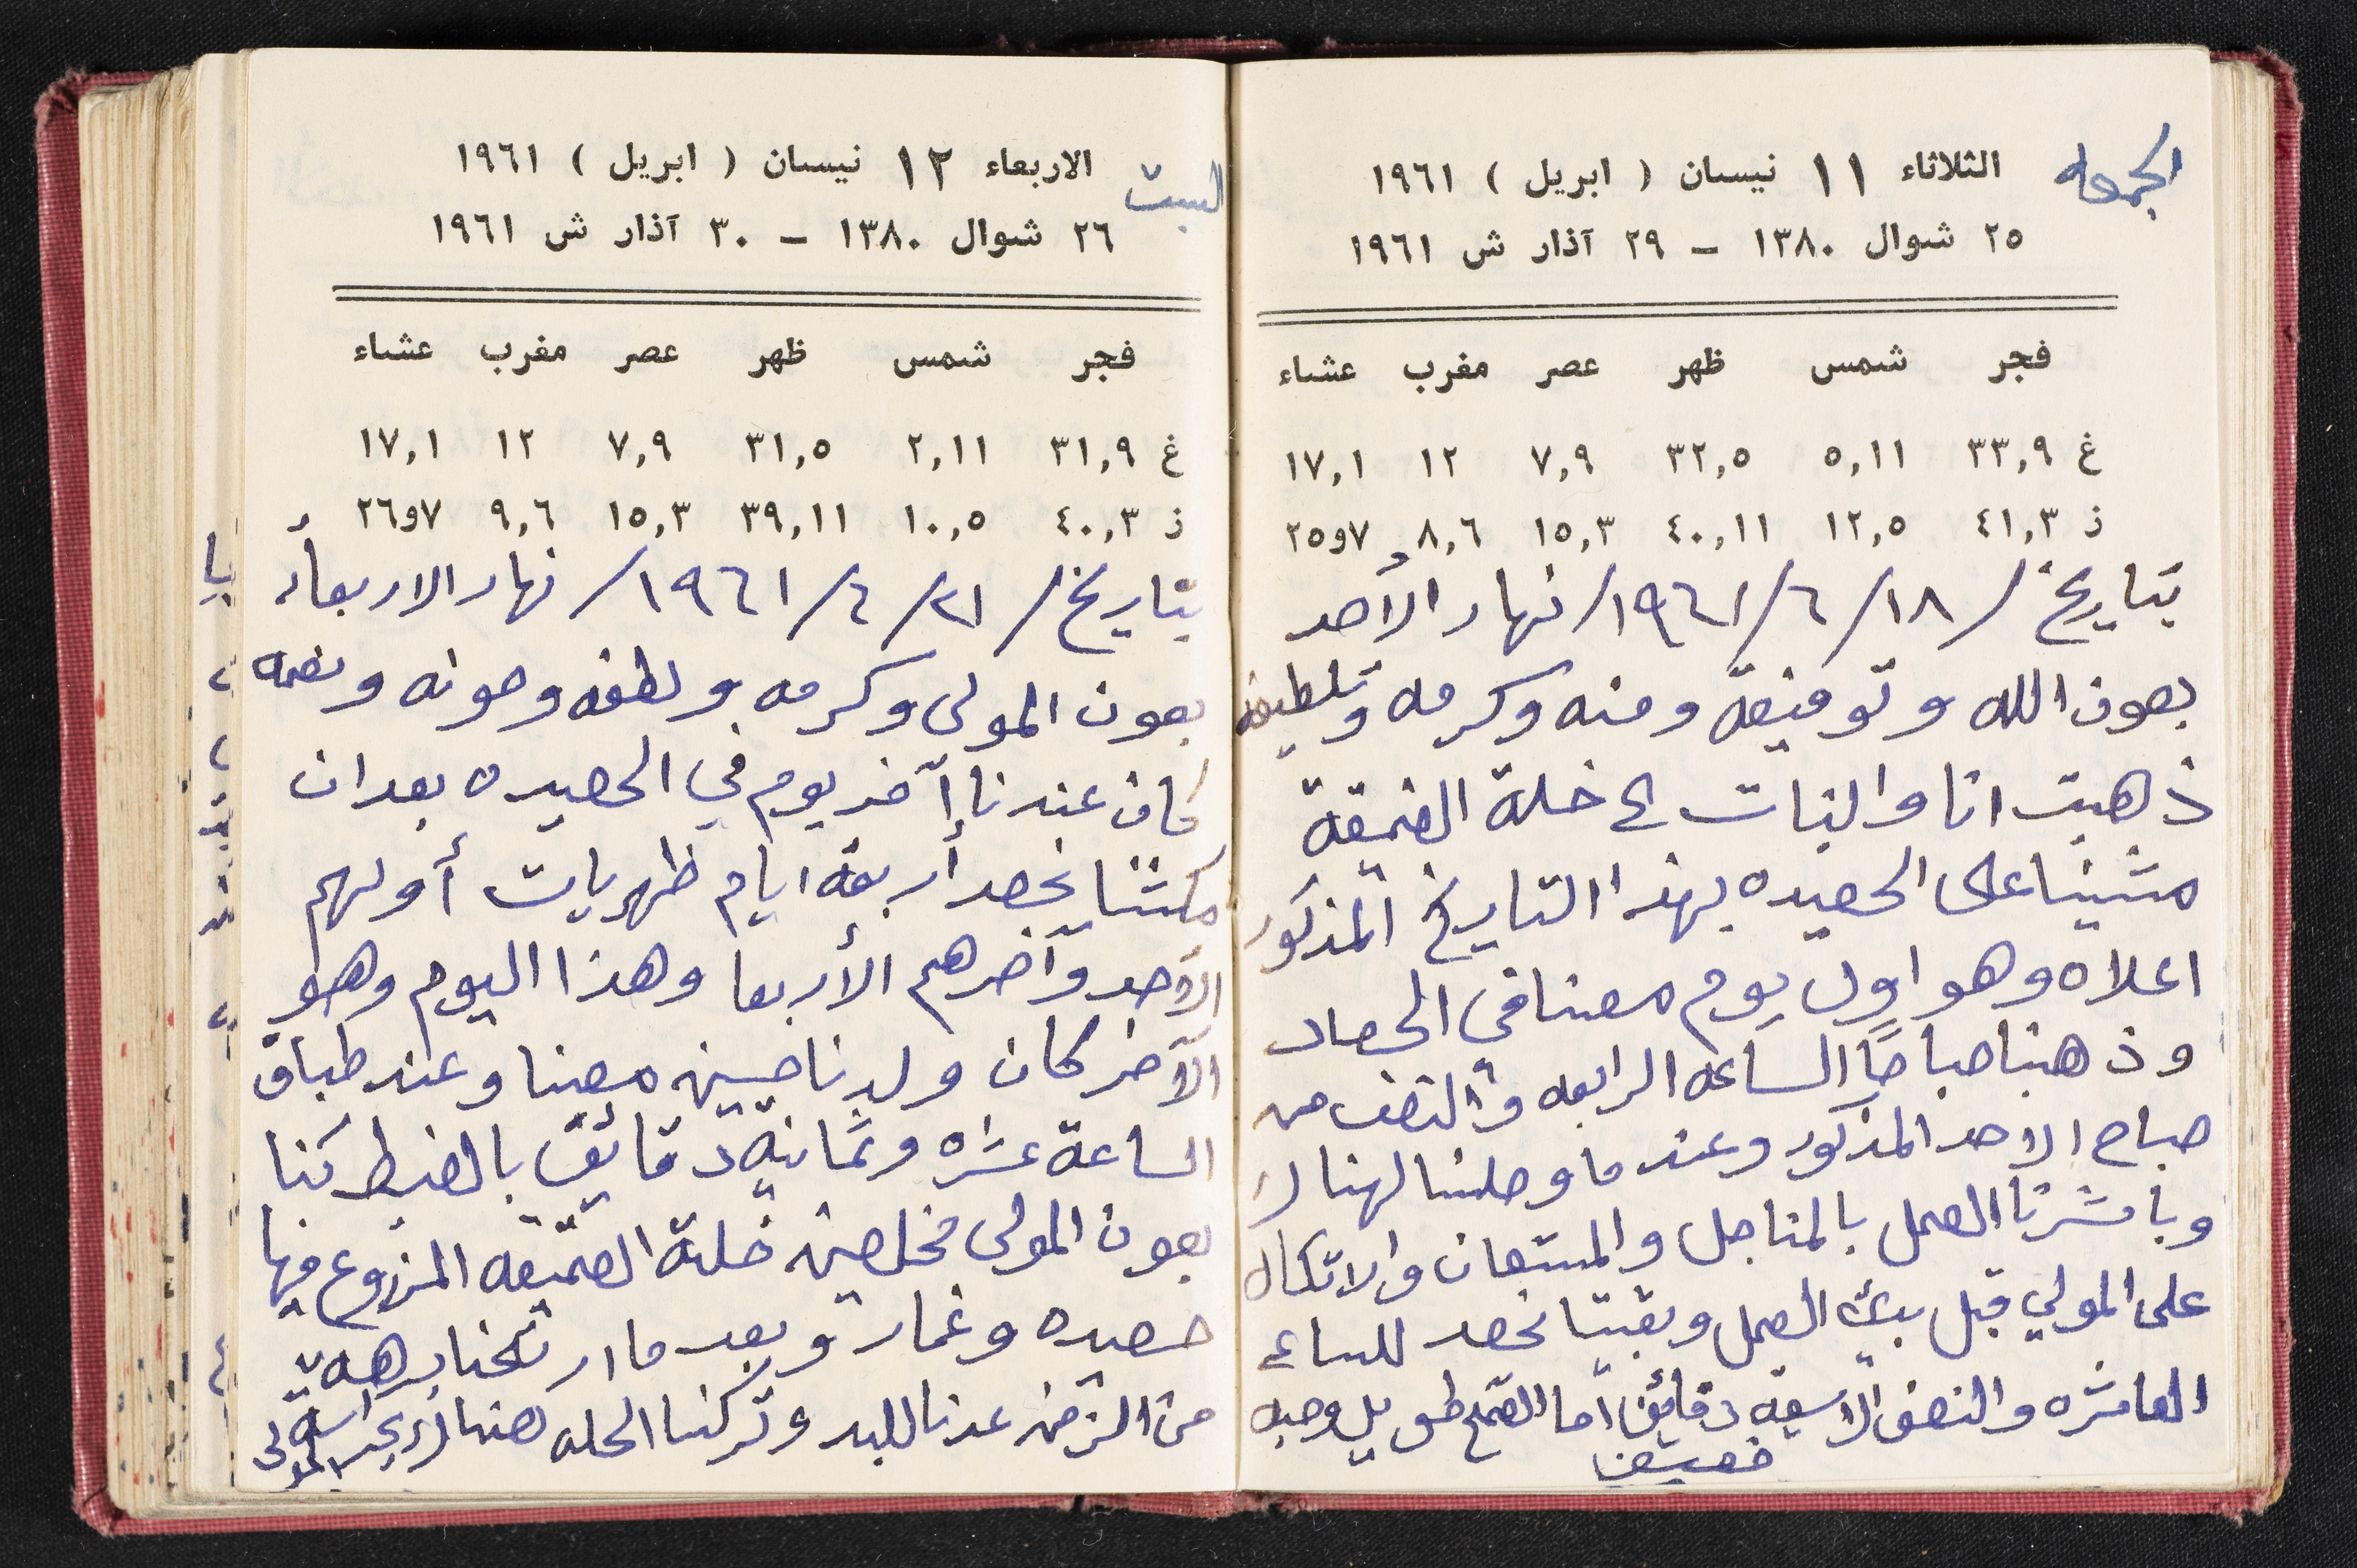 الجمعه
الثلاثاء ١١ نيسان ( ابريل ) ١٩٦١
٢٥ شوال ١٣٨٠ – ٢٩ آذار ش ١٩٦١
فجر شمس ظهر عصر مغرب عشاء
غ ٣٣,٩ ٥,١١ ٣٢,٥ ٧,٩ ١٢ ١٧,١
ز ٤١,٣ ١٢,٥ ٤٠,١١ ١٥,٣ ٨,٦ ٧و٢٥
بتاريخ /١٨/٦/١٩٦١/ نهار الأحد
بعون الله وتوفيقه ومنه وكرمه
ذهبت انا والبنات الى خلة العميقة
مشينا على الحصيده بهذا التاريخ المذكور
اعلاه وهو اول يوم معنا في الحصاد
وذهبنا صباحاً الساعه الرابعه والنصف من
صباح الاحد المذكور وعند ما وصلنا لهناك
وباشرنا العمل بالمناجل والمستعان والاتكال
على المولي قبل بدئ العمل وبقينا نحصد للساعه
العاشره والنصف الا سبعة دقائق اما القمح طويل وحبه
خفيف
السبت
الاربعاء ١٢ نيسان ( ابريل ) ١٩٦١
٢٦ شوال ١٣٨٠ – ٣٠ آذار ش ١٩٦١
فجر شمس ظهر عصر مغرب عشاء
غ ٣١,٩ ٢,١١ ٣١,٥ ٧,٩ ١٢ ١٧,١
ز ٤٠,٣ ١٠,٥ ٣٩,١١ ١٥,٣ ٩,٦ ٧و٢٦
بتاريخ /٢١/٤/١٩٦١/ نهار الاربعأ
بعون المولى وكرمه ولطفه وعونه ونعمه
كان عندنا آخر يوم في الحصيده بعد ان
مكثنا نحصد أربعة ايام ظهريات أولهم
الأحد وآخرهم الأربعا وهذا اليوم وهو
الآخر كان ولدنا حسين معنا وعند طباق
الساعة عشره وثمانية دقائق بالضبط كنا
بعون المولى مخلصين خلة العميقه المزروع فيها
حصيده وغمار وبعد ما ارتحنا برهة
من الزمن عدنا للبلد وتركنا الحله هناك بحراسة
المولى